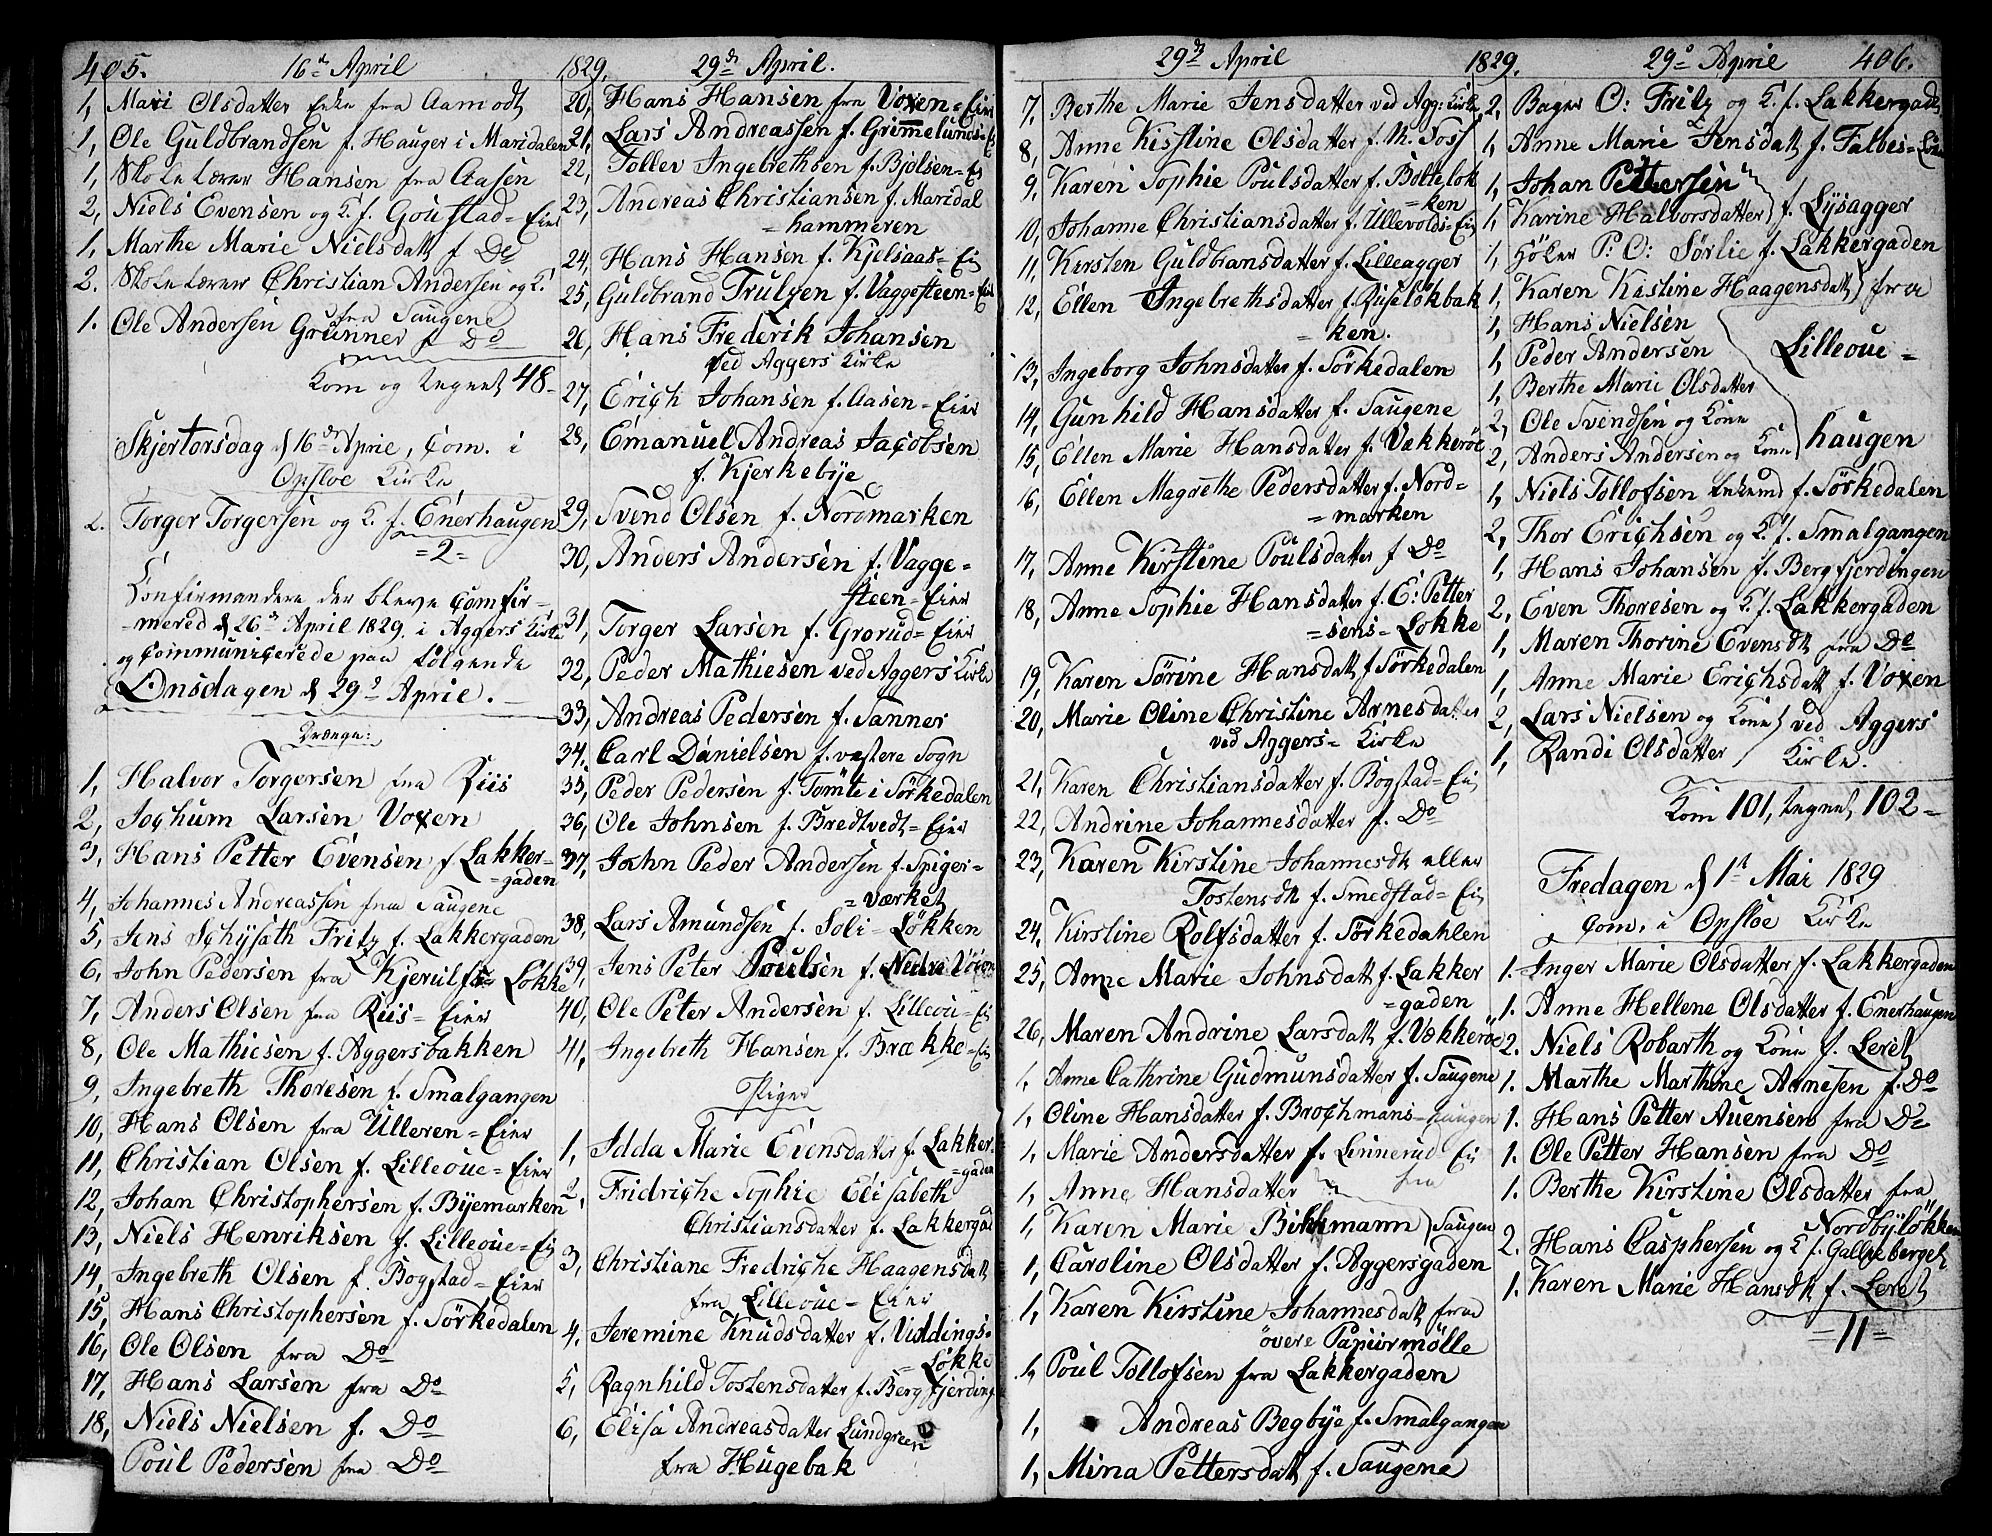 405. 16de April 1829.
1, Mari Olsdatter Enke fra Aamodt
1, Ole Guldbrandsen f. Hauger i Maridalen
1, Skolelærer Hansen fra Aasen
2, Niels Evensen og K. f. Goustad=Eier
1, Marthe Marie Nielsdatt f Do
2. Skolelærer Christian Andersen og K.
fra Saugene
1. Ole Andersen Grünner f Do
Kom og tegnet 48-
Skjertorsdag d 16de April, Com. i
Opsloe Kirke
2. Torger Torgersen og K. f. Enerhaugen
=2=
Confirmandere der bleve Comfir=
=mered d 26de April 1829. i Aggers Kirke
og Communicerede paa følgende
Onsdagen d 29de April.
Drænge:
1, Halvor Torgersen fra Riis
2, Jochum Larsen Voxen
3, Hans Petter Evensen f Lakker=
=gaden
4, Johannes Andreassen fra Saugene
5, Jens Schÿsath Fritz f. Lakkergaden
6, John Pedersen fra Kjerulfs=Løkke
7, Anders Olsen fra Riis=Eier
8, Ole Mathiesen f. Aggersbakken
9, Ingebreth Thoresen f. Smalgangen
10, Hans Olsen fra Ulleren=Eier
11, Christian Olsen f. Lilleoue=Eier
12, Johan Christophersen f. Bÿemarken
13, Niels Henriksen f. Lilleoue=Ei
14, Ingebreth Olsen f. Bogstad=Eier
15, Hans Christophersen f. Sörkedalen
16, Ole Olsen fra Do
17, Hans Larsen fra Do
18, Niels Nielsen f. Do
Poul Pedersen fra Do
29de April.
20, Hans Hansen fra Voxen=Eier
21, Lars Andreassen f. Grimmelunds=E
22, Tollev Ingebrethsen f. Bjölsen=Ei
23, Andreas Christiansen f. Maridal
=hammeren
24, Hans Hansen f. Kjelsaas=Ei
25, Guldbrand Trulsen f. Vaggesteen=Eier
26, Hans Frederik Johansen
ved Aggers Kirke
27, Erich Johansen f. Aasen=Eier
28, Emanuel Andreas Jacobsen
f. Kjerkebÿe
29, Svend Olsen f. Nordmarken
30, Anders Andersen f. Vagge=
steen=Eier
31, Torger Larsen f. Grorud=Eier
32, Peder Mathiesen ved Aggers Kirke
33, Andreas Pedersen f. Sanner
34. Carl Danielsen f. vestere Sogn
35, Peder Pedersen f. Tömte i Sörkedalen
36, Ole Johnsen f. Bredtvedt=Eier
37, John Peder Andersen f. Spiger=
=værket
38, Lars Amundsen f. Soli=Løkken
39, Jens Peter Poulsen f. Nedre Voxen
40, Ole Peter Andersen f. Lilleoue=Ei
41, Ingebreth Hansen f. Brække=Ei
Piger
1, Idda Marie Evensdatter f. Lakker
=gaden
2, Fridriche Sophie Elisabeth
Christiansdatter f. Lakkerga
3, Christiane Fredriche Haagensdatt
fra Lilleoue=Eier
4, Jeremine Knudsdatter f. Uddings=
=Løkke
5, Ragnhild Tostensdatter f. Bergfjerding
6, Elisa Andreasdatter Lundgreen
fra Hugebak
29de April 1829.
7, Berthe Marie Jensdatter ved Agg: Kirke
8, Anne Kirstine Olsdatter f. N. Foss
9, Karen Sophie Poulsdatter f. Bölteløk
=ken
10, Johanne Christiansdatter f. Ullevolds=Ei
11, Kirsten Guldbransdatter f. Lilleagger
12, Ellen Ingebrethsdatter f. Ruseløkbak
=ken.
13, Ingeborg Johnsdatter f. Sörkedalen
14, Gunhild Hansdatter f. Saugene
15, Ellen Marie Hansdatter f. Vækkeröe
16, Ellen Magrethe Pedersdatter f. Nord=
=marken
17, Anne Kirstine Poulsdatter f Do
18, Anne Sophie Hansdatter f. E: Petter
=sens=Løkke
19, Karen Sörine Hansdatt f Sörkedalen
20, Marie Oline Christine Arnesdatter
ved Aggers=Kirke
21, Karen Christiansdatter f. Bogstad=Ei
22, Andrine Johannesdatter f. Do
23, Karen Kirstine Johannesdt eller
Tostensdt f. Smedstad=Ei
24, Kirstine Rolfsdatter f. Sörkedahlen
25, Anne Marie Johnsdatt f. Lakker
=gaden
26, Maren Andrine Larsdatt f. Vækkeröe
1, Anne Cathrine Gudmunsdatter f. Saugene
1, Oline Hansdatter f. Brochmans=haugen
1, Marie Andersdatter f. Linnerud Ei
1, Anne Hansdatter fra
1, Karen Marie Birkmann Saugen
1, Caroline Olsdatter f. Aggersgaden
1, Karen Kirstine Johannesdatt fra
övere Papiirmölle
1, Poul Tollofsen fra Lakkergaden
1, Andreas Begbÿe f. Smalgangen
1, Mina Pettersdatt f. Saugene
29de April 406.
2, Bager O: Fritz og K. f. Lakkergade
1, Anne Marie Jensdatt f. Falbes=Löke
1, Johan Pettersen
1, Karine Halvorsdatter f. Lÿsagger
1, Höker P: O: Sørlie f. Lakkergaden
1, Karen Kistine Haagensdatt fra
1, Hans Nielsen
1, Peder Andersen Lilleoue=
1, Berthe Marie Olsdatter
2, Ole Svendsen og Kone
2, Anders Andersen og Kone haugen
1, Niels Tollofsen Enkemd f. Sörkedalen
2, Thor Erichsen og K. f. Smalgangen
1, Hans Johansen f. Bergfjerdingen
2, Even Thoresen og K. f. Lakkergaden
1, Maren Thorine Evensdt fra Do
1, Anne Marie Erichsdatt f. Voxen
2, Lars Nielsen og Kone ved Aggers
1, Randi Olsdatter Kirke.
Kom 101, tegnet 102=
Fredagen d 1de Mai 1829
Com. i Opsloe Kirke
1. Inger Marie Olsdatter f. Lakkergaden
1. Anne Hellene Olsdatter f. Enerhaugen
2. Niels Robarth og Kone f. Leret
1. Marthe Marthine Arnesen f. Do
1. Hans Petter Auensen fra Do
1. Ole Petter Hansen fra Do
1. Berthe Kirstine Olsdatter fra
Nordbÿløkken
2. Hans Casphersen og K f. Galleberget
1. Karen Marie Hansdt f. Leret
=11=